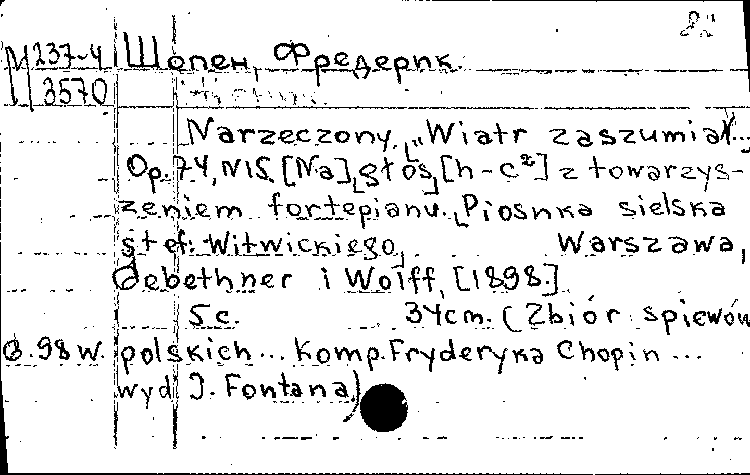 82
М 237-4 Шопен, Фредерик.
3570
Narzeczony. „Wiatr zaszumiał...„
Op. 74, N15. [Na] głos [h-c²] z towarzys-
zeniem fortepianu. Piosnka sielska
Stef. Witwickiego, Warszawa,
Gebethner i Wolff, [1898.]
5 c. 34 cm. (Zbiór spiewów
6.98 w. polskich... Komp. Fryderyka Chopin...
wyd J. Fontana.)